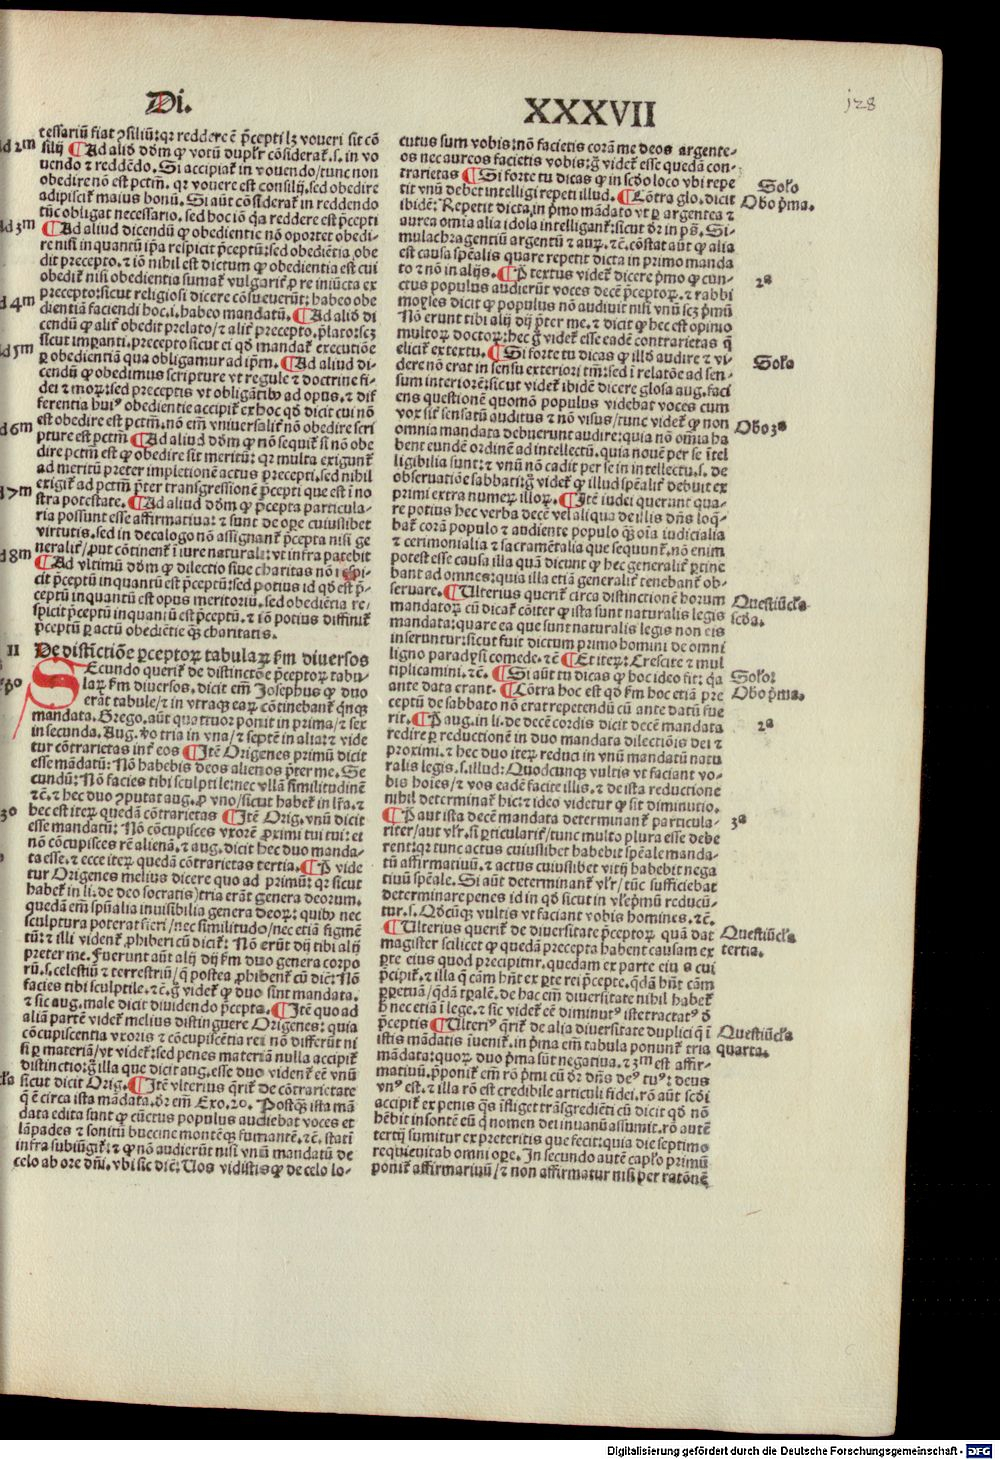 Di.
XXXVII
128
tessariū fiat ↄsiliū: qꝛ reddere ē p̄cepti lꝫ voveri sit cō
silij ¶ Ad aliō dōm ꝙ votū duplr̄ cōsiderat̄. s. in vo
vendo ⁊ reddēdo. Si accipiat̄ in vovendo / tunc non
obedire nō est pctm̄. qꝛ vovere est consilij. sed obedire
adipiscit̄ maius bonū. Si aūt cōsiderat̄ in reddendo
tūc obligat necessario. sed hoc iō q̄a reddere est p̄cepti
¶ Ad aliud dicendū ꝙ obedientie nō oportet obedi-
re nisi inquantū ip̄a respicit p̄ceptū: sed obediētia obe
dit precepto. ⁊ iō nihil est dictum ꝙ obedientia est cui
obedit̄ nisi obedientia sumat̄ vulgarit̄ ꝓ re iniūcta ex
precepto: sicut religiosi dicere cōsueverūt: habeo obe
dientiā faciendi hoc. i. habeo mandatū. ¶ Ad aliō di
cendū ꝙ alit̄ obedit prelato / ⁊ alit̄ precepto. p̄lato: scꝫ
sicut imperanti. precepto sicut ei qd̄ mandat̄ executiōe
ꝑ obedientiā qua obligamur ad ip̄m. ¶ Ad aliud di-
cendū ꝙ obedimus scripture vt regule ⁊ doctrine fi-
dei ⁊ moꝝ: sed preceptis vt obligātibꝰ ad opus. ⁊ dif
ferentia huiꝰ obedientie accipit̄ ex hoc qd̄ dicit cui nō
est obedire est pctm̄. nō em̄ vniversalit̄ nō obedire scri
pture est pctm̄ ¶ Ad aliud dōm ꝙ nō sequit̄ si nō obe
dire pctm̄ est ꝙ obedire sit meritū: qꝛ multa exigunt̄
ad meritū preter impletionē actus precepti. sed nihil
exigit̄ ad pctm̄ p̄ter transgressionē p̄cepti que est ī no
stra potestate. ¶ Ad aliud dōm ꝙ p̄cepta particula-
ria possunt esse affirmativa: ⁊ sunt de oꝑe cuiuslibet
virtutis. sed in decalogo nō assignant̄ p̄cepta nisi ge
neralit̄ / ꝓut cōtinent̄ ī iure naturali: vt infra patebit
¶ Ad vltimū dōm ꝙ dilectio sive charitas nō respi-
cit p̄ceptū inquantū est p̄ceptū: sed potius id qd̄ est p̄-
ceptū inquantū est opus meritoriū. sed obediētia re-
spicit p̄ceptū inquantū est p̄ceptū. ⁊ iō potius diffinit̄
p̄ceptū ꝑ actū obediētie q̄ꝫ charitatis.
II De distīctiōe p̄ceptoꝝ tabulaꝝ fm̄ diversos
SEcundo querit̄ de distinctōe p̄ceptoꝝ tabu-
laꝝ fm̄ diversos. dicit em̄ Josephus ꝙ duo
erāt tabule / ⁊ in vtraqꝫ eaꝝ cōtinebant̄ qn̄qꝫ
mandata. Grego. aūt quattuor ponit in prima / ⁊ sex
in secunda. Aug. ꝟo tria in vna / ⁊ septē in alia: ⁊ vide
tur cōtrarietas int̄ eos ¶ Itē Origenes primū dicit
esse mandatū: Nō habebis deos alienos p̄ter me. Se
cundū: Nō facies tibi sculptile: nec vllā similitudinē
⁊c. ⁊ hec duo ↄputat aug. ꝓ vno / sicut habet̄ in lr̄a. ⁊
hec est iteꝝ quedā cōtrarietas ¶ Itē Orig. vnū dicit
esse mandatū: Nō cōcupisces vxorē ꝓximi tui tui: et
nō cōcupisces rē alienā. ⁊ aug. dicit hec duo manda-
ta esse. ⁊ ecce iteꝝ quedā cōtrarietas tertia. ¶ P̄ vide
tur Origenes melius dicere quo ad primū: qꝛ sicut
habet̄ in li. de deo socratis) tria erāt genera deorum.
quedā em̄ spūalia invisibilia genera deoꝝ: quibꝰ nec
sculptura poterat fieri / nec similitudo / nec etiā figmē
tū: ⁊ illi vident̄ ꝓhiberi cū dicat̄: Nō erūt dij tibi alij
preter me. Fuerunt aūt alij dij fm̄ duo genera corpo
rū. s. celestiū ⁊ terrestriū / q̄ postea ꝓhibent̄ cū dic̄: Nō
facies tibi sculptile. ⁊c. g̊ videt̄ ꝙ duo sint mandata.
⁊ sic aug. male dicit dividendo p̄cepta. ¶ Itē quo ad
aliā partē videt̄ melius distinguere Origenes: quia
cōcupiscentia vxoris ⁊ cōcupiscētia rei nō differūt ni
si ꝑ materiā / vt videt̄: sed penes materiā nulla accipit̄
distinctio: g̊ illa que dicit aug. esse duo vident̄ eē vnū
sicut dicit Orig. ¶ Itē vlterius q̄rit̄ de cōtrarietate
q̄ ē circa ista mādata. dr̄ em̄ Exo. 20. Postqꝫ ista mā
data edita sunt ꝙ cūctus populus audiebat voces et
lāpades ⁊ sonitū buccine montēqꝫ fumantē. ⁊c. stati
infra subiūgit̄: ⁊ ꝙ nō audierūt nisi vnū mandatū de
celo ab ore dn̄i. vbi sic dic̄: Uos vidistis ꝙ de celo lo-
cutus sum vobis: nō facietis corā me deos argente-
os nec aureos facietis vobis: g̊ videt̄ esse quedā con-
trarietas ¶ Si forte tu dicas ꝙ in scd̄o loco vbi repe
tit vnū debet intelligi repeti illud. ¶ Cōtra glo. dicit
ibidē: Repetit dicta in p̄mo mādato vt ꝑ argentea ⁊
aurea omīa alia idola intelligant̄: sicut dr̄ in ps̄. Si-
mulachra gentiū argentū ⁊ auꝝ. ⁊c. cōstat aūt ꝙ alia
est causa sp̄ealis quare repetit dicta in primo manda
to ⁊ nō in alijs. ¶ P̄ textus videt̄ dicere p̄mo ꝙ cun-
ctus populus audierūt voces decē p̄ceptoꝝ. ⁊ rabbi
moyses dicit ꝙ populus nō audivit nisi vnū scꝫ p̄mū
Nō erunt tibi alij dij p̄ter me. ⁊ dicit ꝙ hec est opinio
multoꝝ doctoꝝ: hec g̊ videt̄ esse eadē contrarietas q̄
elicit̄ ex textu. ¶ Si forte tu dicas ꝙ illd̄ audire ⁊ vi-
dere nō erat in sensu exteriori tm̄: sed ī relatōe ad sen-
sum interiorē: sicut videt̄ ibidē dicere glosa aug. faci
ens questionē quomō populus videbat voces cum
vox sit sensatū auditus ⁊ nō visus / tunc videt̄ ꝙ non
omnia mandata debuerunt audire: quia nō omīa ha
bent eundē ordinē ad intellectū. quia novē per se ītel
ligibilia sunt: ⁊ vnū nō cadit per se in intellectu. s. de
observatiōe sabbati: g̊ videt̄ ꝙ illud sp̄ealit̄ debuit ex
primi extra numeꝝ illoꝝ. ¶ Itē iudei querunt qua-
re potius hec verba decē vel aliqua de illis dn̄s loq̄-
bat̄ corā populo ⁊ audiente populo q̄ꝫ oīa iudicialia
⁊ cerimonialia ⁊ sacramētalia que sequunt̄. nō enim
potest esse causa illa quā dicunt ꝙ hec generalit̄ ꝑtine
bant ad omnes: quia illa etiā generalit̄ tenebant̄ ob-
servare. ¶ Ulterius querit̄ circa distinctionē horum
mandatoꝝ cū dicat̄ cōiter ꝙ ista sunt naturalis legis
mandata: quare ea que sunt naturalis legis non eis
inseruntur: sicut fuit dictum primo homini de omni
ligno paradysi comede. ⁊c ¶ Et iteꝝ: Crescite ⁊ mul
tiplicamini. ⁊c. ¶ Si aūt tu dicas ꝙ hoc ideo fit: q̄a
ante data erant. ¶ Cōtra hoc est qd̄ fm̄ hoc etiā pre
ceptū de sabbato nō erat repetendū cū ante datū fue
rit. ¶ P̄ aug. in li. de decē cordis dicit decē mandata
redire ꝑ reductionē in duo mandata dilectiōis dei ⁊
proximi. ⁊ hec duo iteꝝ reduci in vnū mandatū natu
ralis legis. s. illud: Quodcunqꝫ vultis vt faciant vo-
bis hoīes / ⁊ vos eadē facite illis. ⁊ de ista reductione
nihil determinat̄ hic: ⁊ ideo videtur ꝙ sit diminutio.
¶ P̄ aut ista decē mandata determinant̄ particula-
riter / aut vlr̄. si ꝑticularit̄ / tunc multo plura esse debe
rent: qꝛ tunc actus cuiuslibet habebit sp̄eale manda-
tū affirmativū. ⁊ actus cuiuslibet vitij habebit nega
tivū sp̄eale. Si aūt determinant̄ vlr̄ / tūc sufficiebat
determinare penes id in qd̄ sicut in vlep̄mū reducū-
tur. s. Qd̄cūqꝫ vultis vt faciant vobis homines. ⁊c.
¶ Ulterius querit̄ de diversitate p̄ceptoꝝ quā dat
magister scilicet ꝙ quedā precepta habent causam ex
ꝑte eius quod precipitur. quedam ex parte eiꝰ cui
p̄cipit̄. ⁊ illa q̄ cām hn̄t ex ꝑte rei p̄cepte. q̄dā hn̄t cām
ꝑpetuā / q̄dā tꝑalē. de hac em̄ diversitate nihil habet̄
h̄ nec etiā ī lege. ⁊ sic videt̄ eē diminutꝰ iste tractatꝰ d̓
p̄ceptis ¶ Ulteriꝰ q̄rit̄ de alia diversitate duplici q̄ ī
istis mādatis īvenit̄. in p̄ma em̄ tabula ponunt̄ tria
mādata: quoꝝ duo p̄ma sūt negativa. ⁊ 3m est affir-
mativū. p̄ponit̄ em̄ rō p̄mi cū dr̄ dn̄s deꝰ tuꝰ: deus
vnꝰ est. ⁊ illa rō est credibile articuli fidei. rō aūt scd̄i
accipit̄ ex penis q̄s īfliget trāsgrediēti cū dicit qd̄ nō
hēbit insontē eū q̄ nomen dei in vanū assumit. rō autē
tertij sumitur ex preteritis que fecit: quia die septimo
requievit ab omni oꝑe. In secundo autē capl̄o primū
ponit̄ affirmativū / ⁊ non affirmatur nisi per ratōnē
d 2m
d 3m
d 4m
d 5m
d 6m
d 7m
d 8m
30
Solo
Obo p̄ma.
2a
Solo
Obo 3a
Questiūcl̄a
scd̄a.
Solo:
Obo p̄ma.
2a
3a
Questiūcl̄a
tertia.
Questiūcl̄a
quarta.
Digitalisierung gefördert durch die Deutsche Forschungsgemeinschaft - DFG